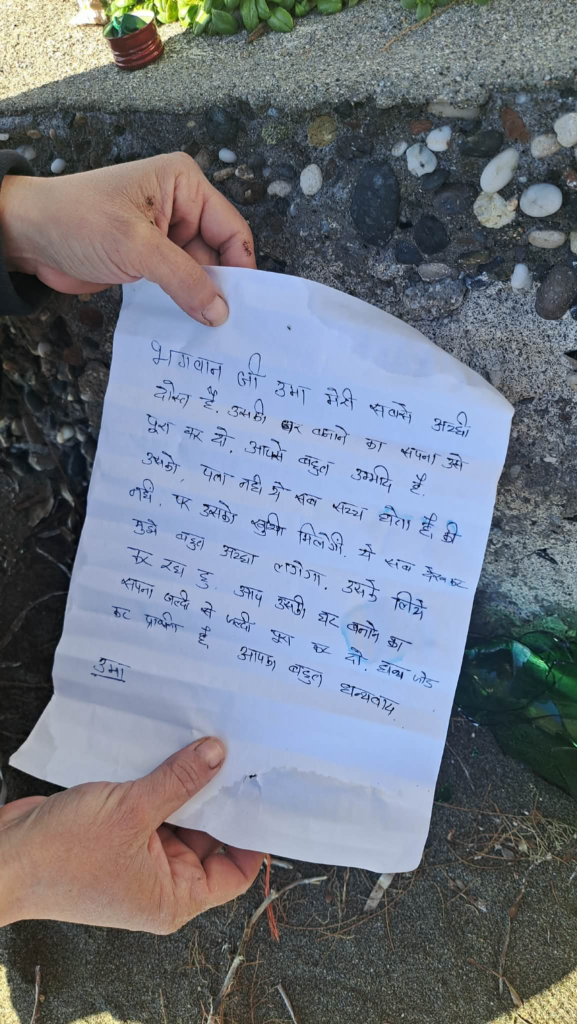 भगवान जी उमा मेरी सबसे अच्छी
दोस्त है. उसकी घर बनाने का सपना उसे
पूरा कर दो. आपसे बहुत उम्मीद है.
उसको. पता नही ये सब सच्च होता है. की
नही. पर उसको खुशी मिलेगी. ये सब देख कर
मुझे बहुत अच्छा लगेगा. उसके लिये
कर रहा हु आप उसकी घर बनाने का
सपना जल्दी से जल्दी पूरा कर दो. हाथ जोड
कर प्रार्थना है, आपका बहुत धन्यवाद.
उमा